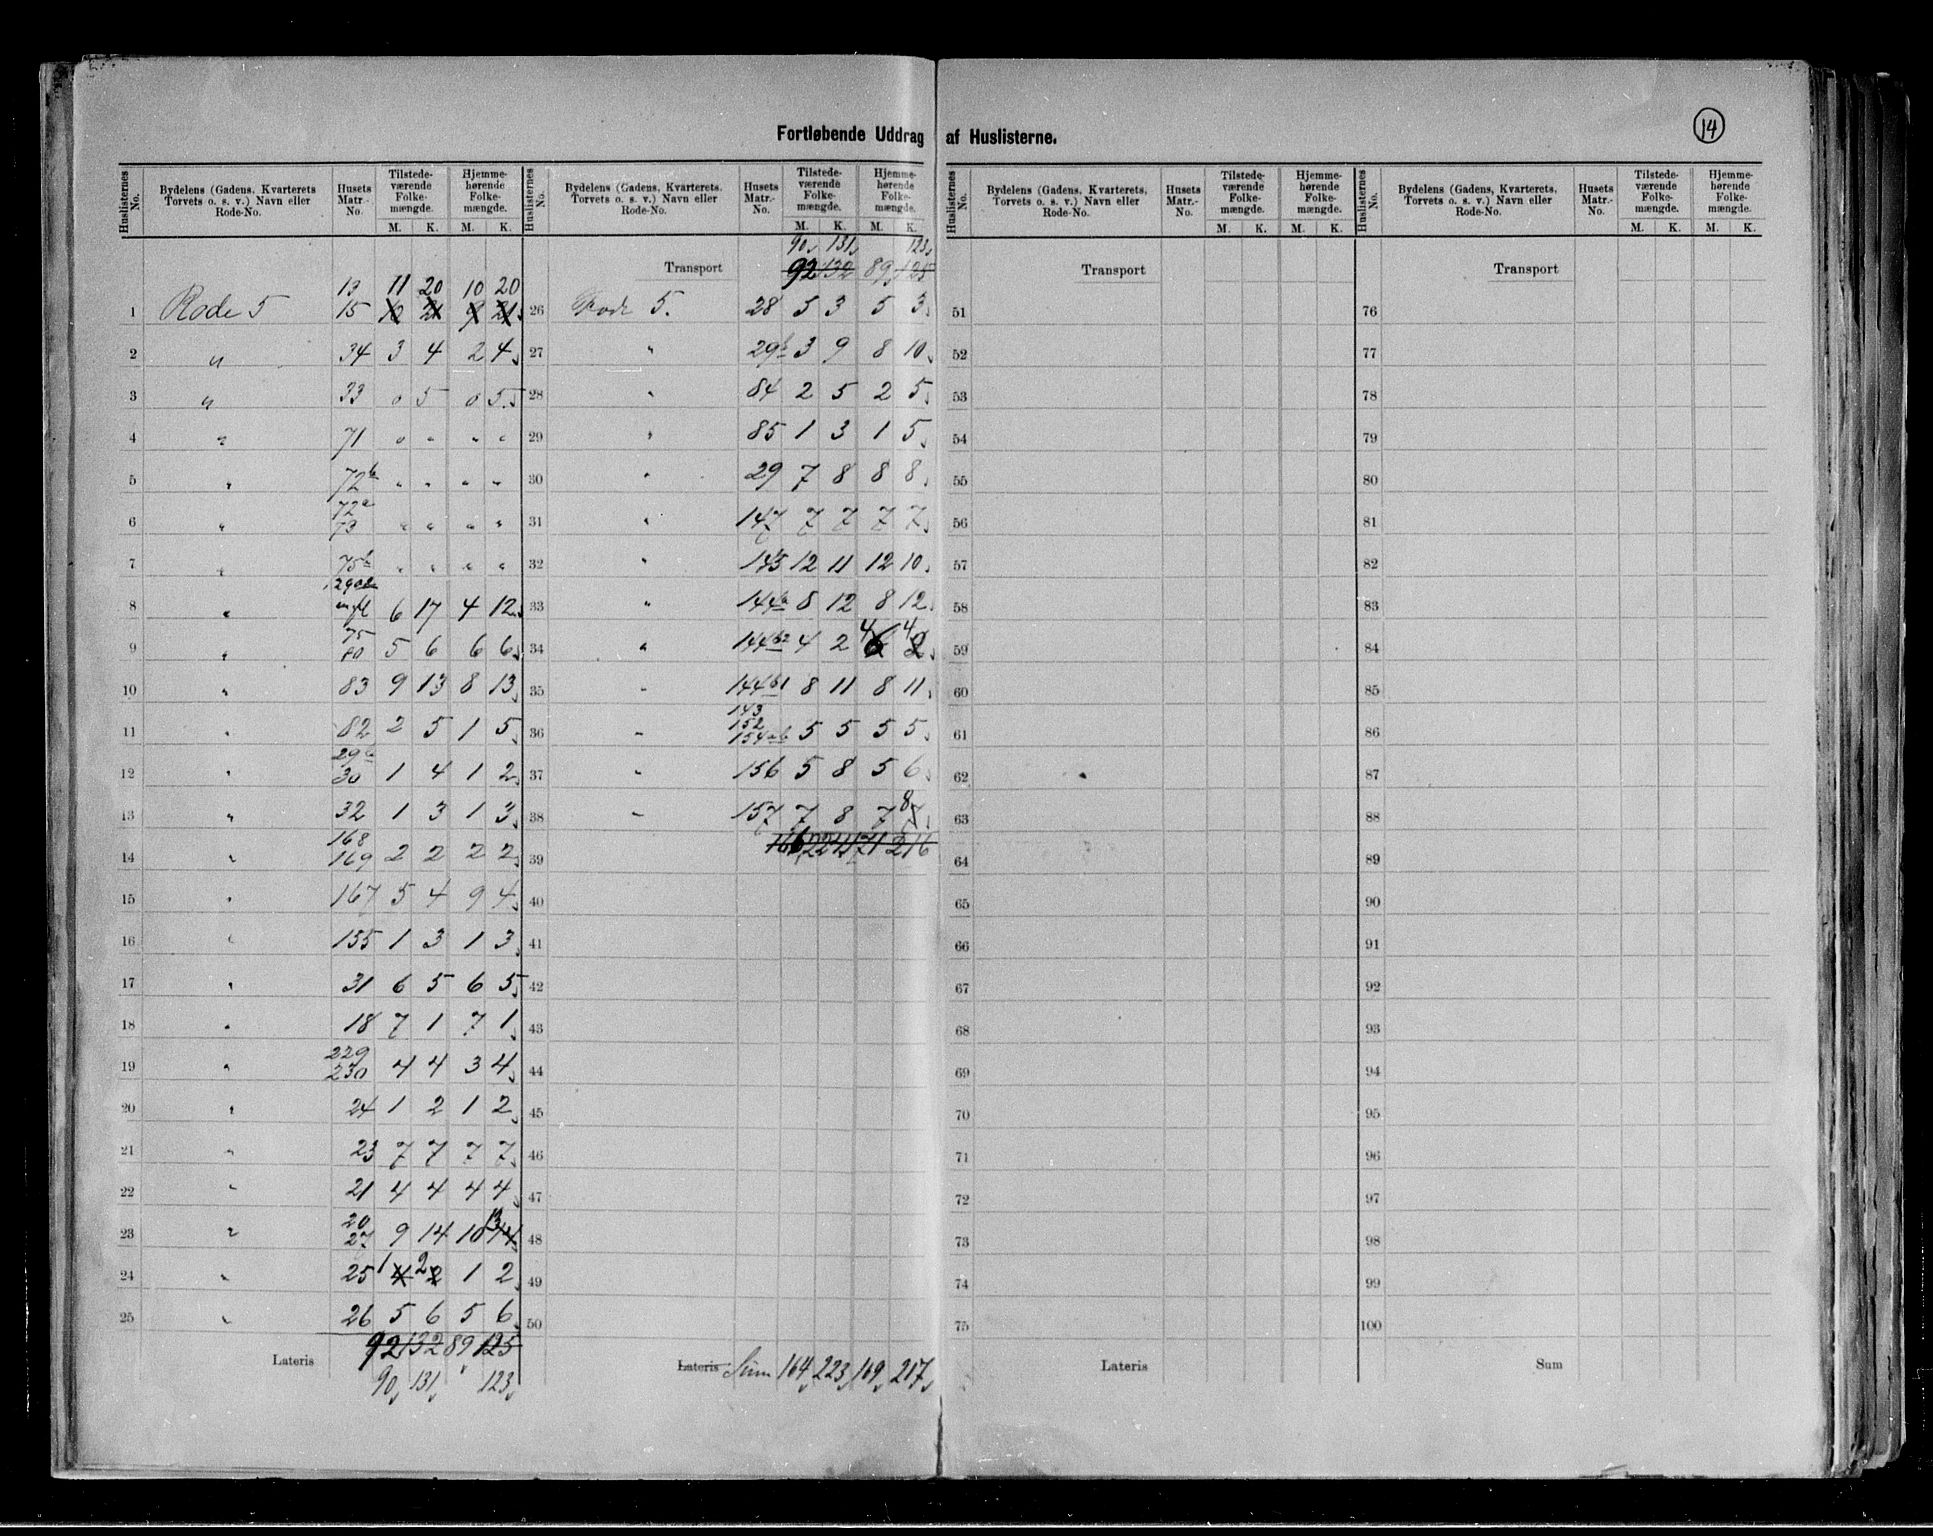 Fortløbende Uddrag af Huslisterne.
14
Huslisternes No. Bydelens (Gadens, Kvarterets Torvets o. s. v.) Navn eller Rode-No. Husets Matr.-No. Tilstedeværende Folkemængde. M. K. Hjemmehørende Folkemængde. M. K.
13 11 20 10 20
1 Rode 5 15
2 " 34 3 4 2 4
3 " 33 0 5 0 5
4 " 71 " " " "
5 " 72b " " " "
72a
6 " 73 " " " "
7 " 75b " " " "
8 " mfl 6 17 4 12
75
9 " 80 5 6 6 6
10 " 83 9 13 8 13
11 " 82 2 5 1 5
29b
12 " 30 1 4 1 2
13 " 32 1 3 1 3
168
14 " 169 2 2 2 2
15 " 167 5 4 9 4
16 " 155 1 3 1 3
17 " 31 6 5 6 5
18 " 18 7 1 7 1
229
19 " 230 4 4 3 4
20 " 24 1 2 1 2
21 " 23 7 7 7 7
22 " 21 4 4 4 4
20
23 " 27 9 14 10 13
24 " 25 1 2 1 2
25 " 26 5 6 5 6
92 132 89 125
Lateris 90 131 " 123
Huslisternes No. Bydelens (Gadens, Kvarterets, Torvets o. s. v.) Navn eller Rode-No. Husets Matr.-No. Tilstedeværende Folkemængde. M. K. Hjemmehørende Folkemængde. M. K.
90 131 123
Transport 92 132 89 125
26 Rode 5. 28 5 3 5 3
27 " 29b 3 9 8 10
28 " 84 2 5 2 5
29 " 85 1 3 1 5
30 " 29 7 8 8 8
31 " 147 7 7 7 7
32 " 145 12 11 12 10
33 " 144a 8 12 8 12
34 " 144b2 4 2 4 4
35 " 144b1 8 11 8 11
143
152
36 " 154ab 5 5 5 5
37 " 156 5 8 5 6
38 " 157 7 8 7 8
39 166 224 171 216
40
41
42
43
44
45
46
47
48
49
50
Lateris Sum 164 223 169 217
Huslisternes No. Bydelens (Gadens, Kvarterets, Torvets o. s. v.) Navn eller Rode-No. Husets Matr.-No. Tilstedeværende Folkemængde. M. K. Hjemmehørende Folkemængde. M. K.
Transport
51
52
53
54
55
56
57
58
59
60
61
62
63
64
65
66
67
68
69
70
71
72
73
74
75
Lateris
Huslisternes No. Bydelens (Gadens, Kvarterets, Torvets o. s. v.) Navn eller Rode-No. Husets Matr.-No. Tilstedeværende Folkemængde. M. K. Hjemmehørende Folkemængde. M. K.
Transport
76
77
78
79
80
81
82
83
84
85
86
87
88
89
90
91
92
93
94
95
96
97
98
99
100
Sum